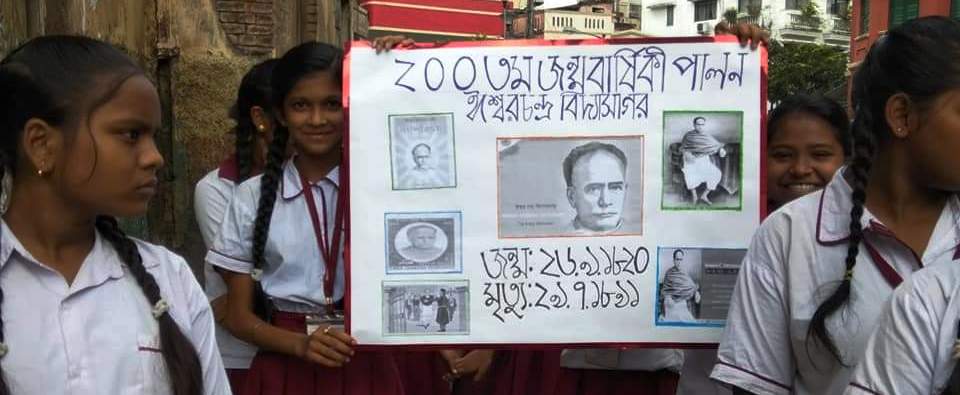 ২০০তম জন্মবার্ষিকী পালন
ঈশ্বরচন্দ্র বিদ্যাসাগর
জন্ম: ২৬.৯.১৮২০
মৃত্যু: ২৯.৭.১৮৯১